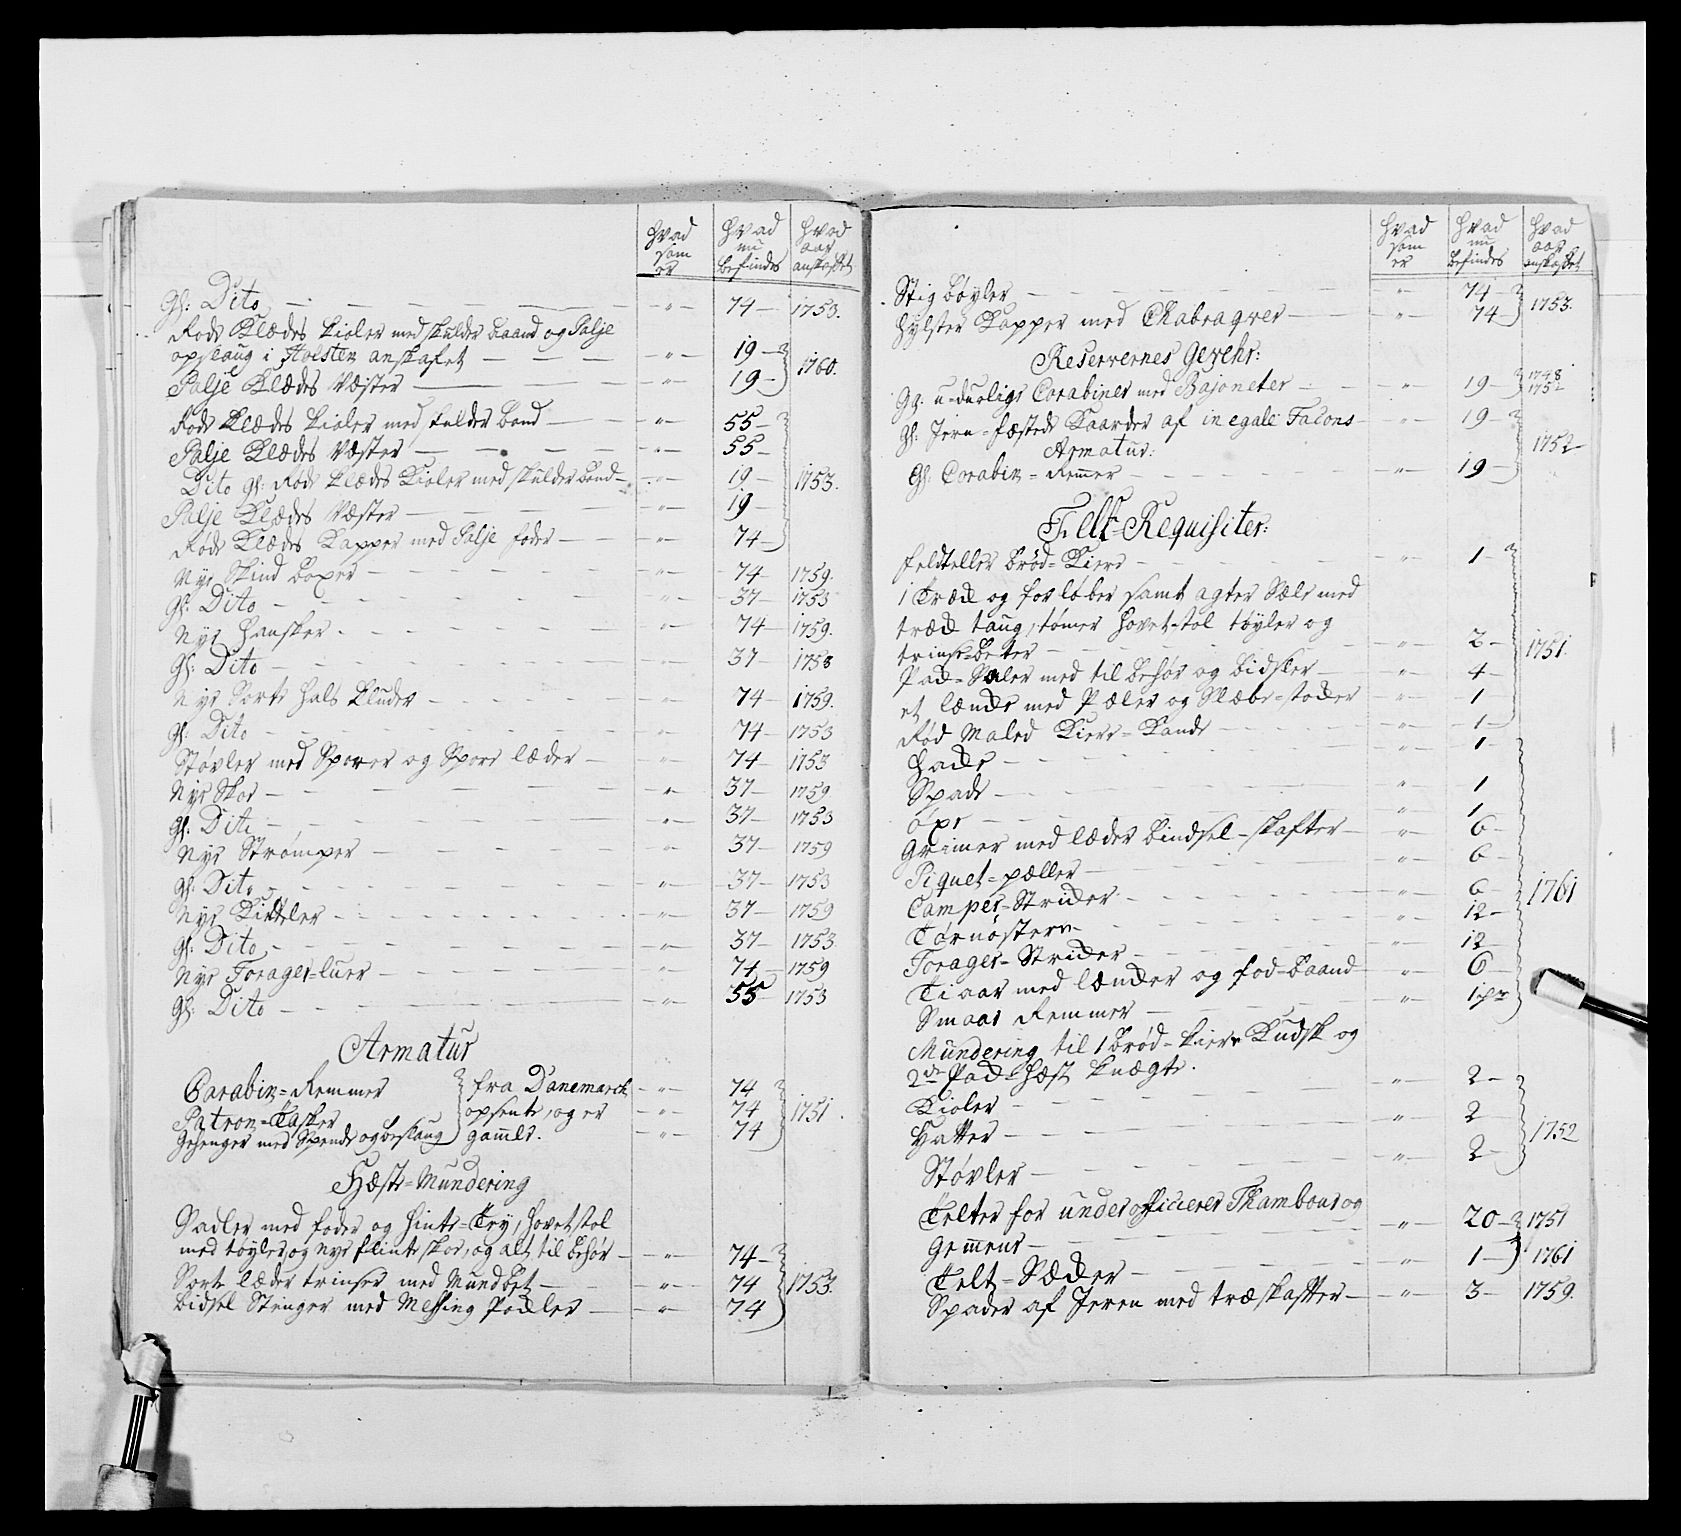 Hvad som er | Hvad nu befindes | Hvad aar anskaffet
Gl: Dito — " — 74 — 1753.
Røde Klædes Kioler med skulder baand og Palje
opslaug i Holsten anskafet — " — 19 —
Palje Klædes Væster — " — 19 — 1760.
Røde Klædes Kioler med skulder bond — " — 55 —
Palje Klædes Væster — " — 55 —
Dito gl: Røde Klædes Kioler med skulder bond — " — 19 — 1753.
Palje Klædes Væster — " — 19 —
Røde Klædes Kapper med Palje foder — " — 74 —
Nye Skind boxer — " — 74 — 1759.
gl: Dito — " — 37 — 1753
Nye Hansker — " — 74 — 1759.
Gl: Dito — " — 37 — 1758
Nye Sorte Hals Kluder — " — 74 — 1759.
gl: Dito — " — 74 — 1753
Støvler med Sporer og Spore læder — " — 74 — 1753
Nye Skoe — " — 37 — 1759
gl: Dito — " — 37 — 1753
Nye Strømper — " — 37 — 1759
gl: Dito — " — 37 — 1753
Nye Kittler — " — 37 — 1759
gl: Dito — " — 37 — 1753.
Nye Forager-luer — " — 74 — 1759
gl: Dito — " — 55 — 1753
Armatur
Carabin-Remmer fra Danemarck — " — 74
Patron-Tasker opsente, og er — " — 74 1751.
Gehenger med Spende og beslaug gamle. — " — 74
Hæste-Mundering
Sadler med foder og hinte-Tøy, hovetstol
med tøyler, og nye flinte skoe, og alt til behør — " — 74 —
Sorte læder trinser med Mundbet — " — 74 1753.
bidsel Stenger med Messing Pocler — " — 74
Hvad som er | Hvad nu befindes | Hvad aar anskaffet
Stig bøyler — " — 74 —
Hylster Kapper med Chabraqver — " — 74 1753.
Reservernes Gevehr:
Gl: u-duelige Carabiner med Bajoneter — " — 19 — 1748 1752
Gl: Jern-fæstede Kaarder af in egale Facons — " — 19 —
Armatur: 1752
Gl: Carabin-Remmer — " — 19 —
Felt-Requisiter:
feldteller brød-Kiere — " — 1 —
1 Træd og forløber samt agter Sæle med
træd taug, tømer hovet-stol tøyler og
trinse-beter — " — 2 — 1751.
Pad-Saler med til behør og bidsler — " — 4 —
et lænde med Pæler og Slæbe-stoder — " — 1
Rød Maled Kiere-Kande — " — 1 —
Hade — " — 1 —
Spade — " — 1
öxe — " — 1 —
Grimer med læder bindsel-skafter — " — 6 —
Piquet-pæller — " — 6 —
Camper-Strider — " — 6 — 1761
Tørnøstern — " — 12 —
Forager-Strider — " — 12
Tiaar med lænder og fod-baand — " — 6
Smaae Remmer — " — 1 pr
Mundering til 1 brød-kiere Kudsk og
2de Pad-Hæst knægte.
Kioler — " — 2 —
Hatter — " — 2 1752
Støvler — " — 2 —
Telter for underofficierer Thambour og
Gemene — " — 20 — 1751
Telt-Sæcker — " — 1 — 1761
Spader af Jeren med træskaffter — " — 3 — 1759.